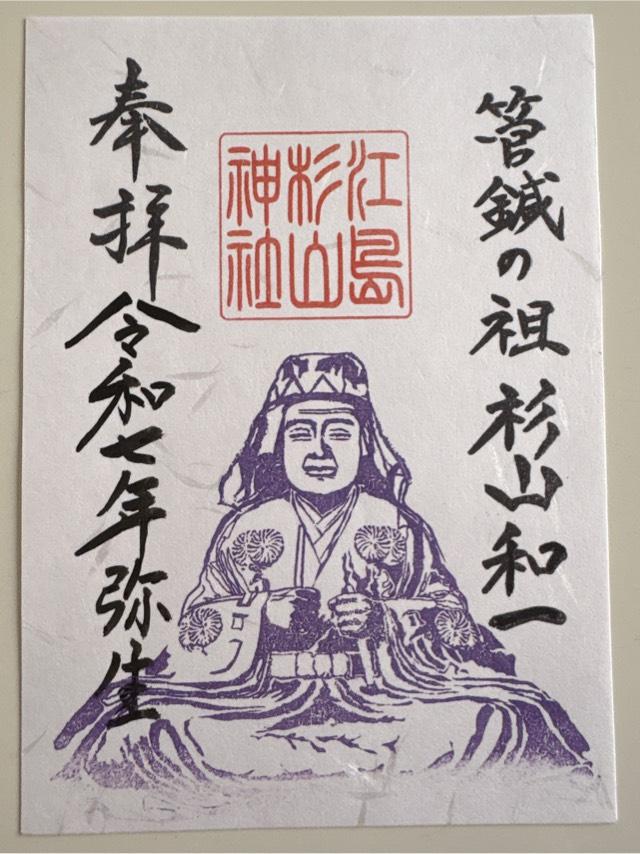 管鍼の祖 杉山和一
江島
杉山
神社
奉拝 令和七年弥生